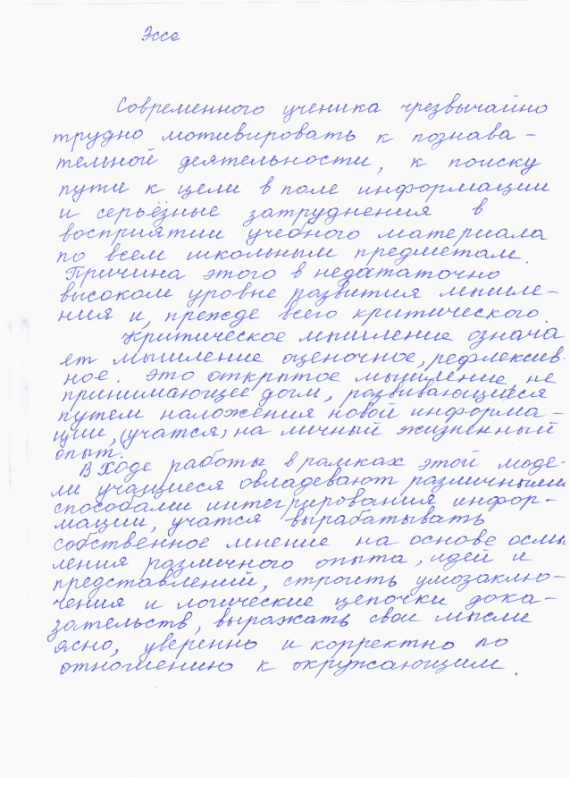 Эссе
Современного ученика чрезвычайно
трудно мотивировать к познава-
тельной деятельности, к поиску
пути к цели в поле информации
и серьёзные затруднения в
восприятии учебного материала
по всем школьным предметам.
Причина этого в недататочно
высоком уровне развития мышле-
ния и, прежде всего критического.
Критическое мышление означа
ет мышление оценочное, рефлексив
ное. Это открытое мышление, не
принимающее догм, развивающиеся
путем наложения новой информа-
ции, (учатся) на личный жизненный
опыт.
В ходе работы в рамках этой моде-
ли учащиеся овладевают различными
способами интегрирования инфор-
мации, учатся вырабатывать
собственное мнение на основе осмы
ления различного опыта, идей и
представлений, строить умозаклю-
чения и логические цепочки дока-
зательств, выражать свои мысли
ясно, уверенно и корректно по
отношению к окружающим.